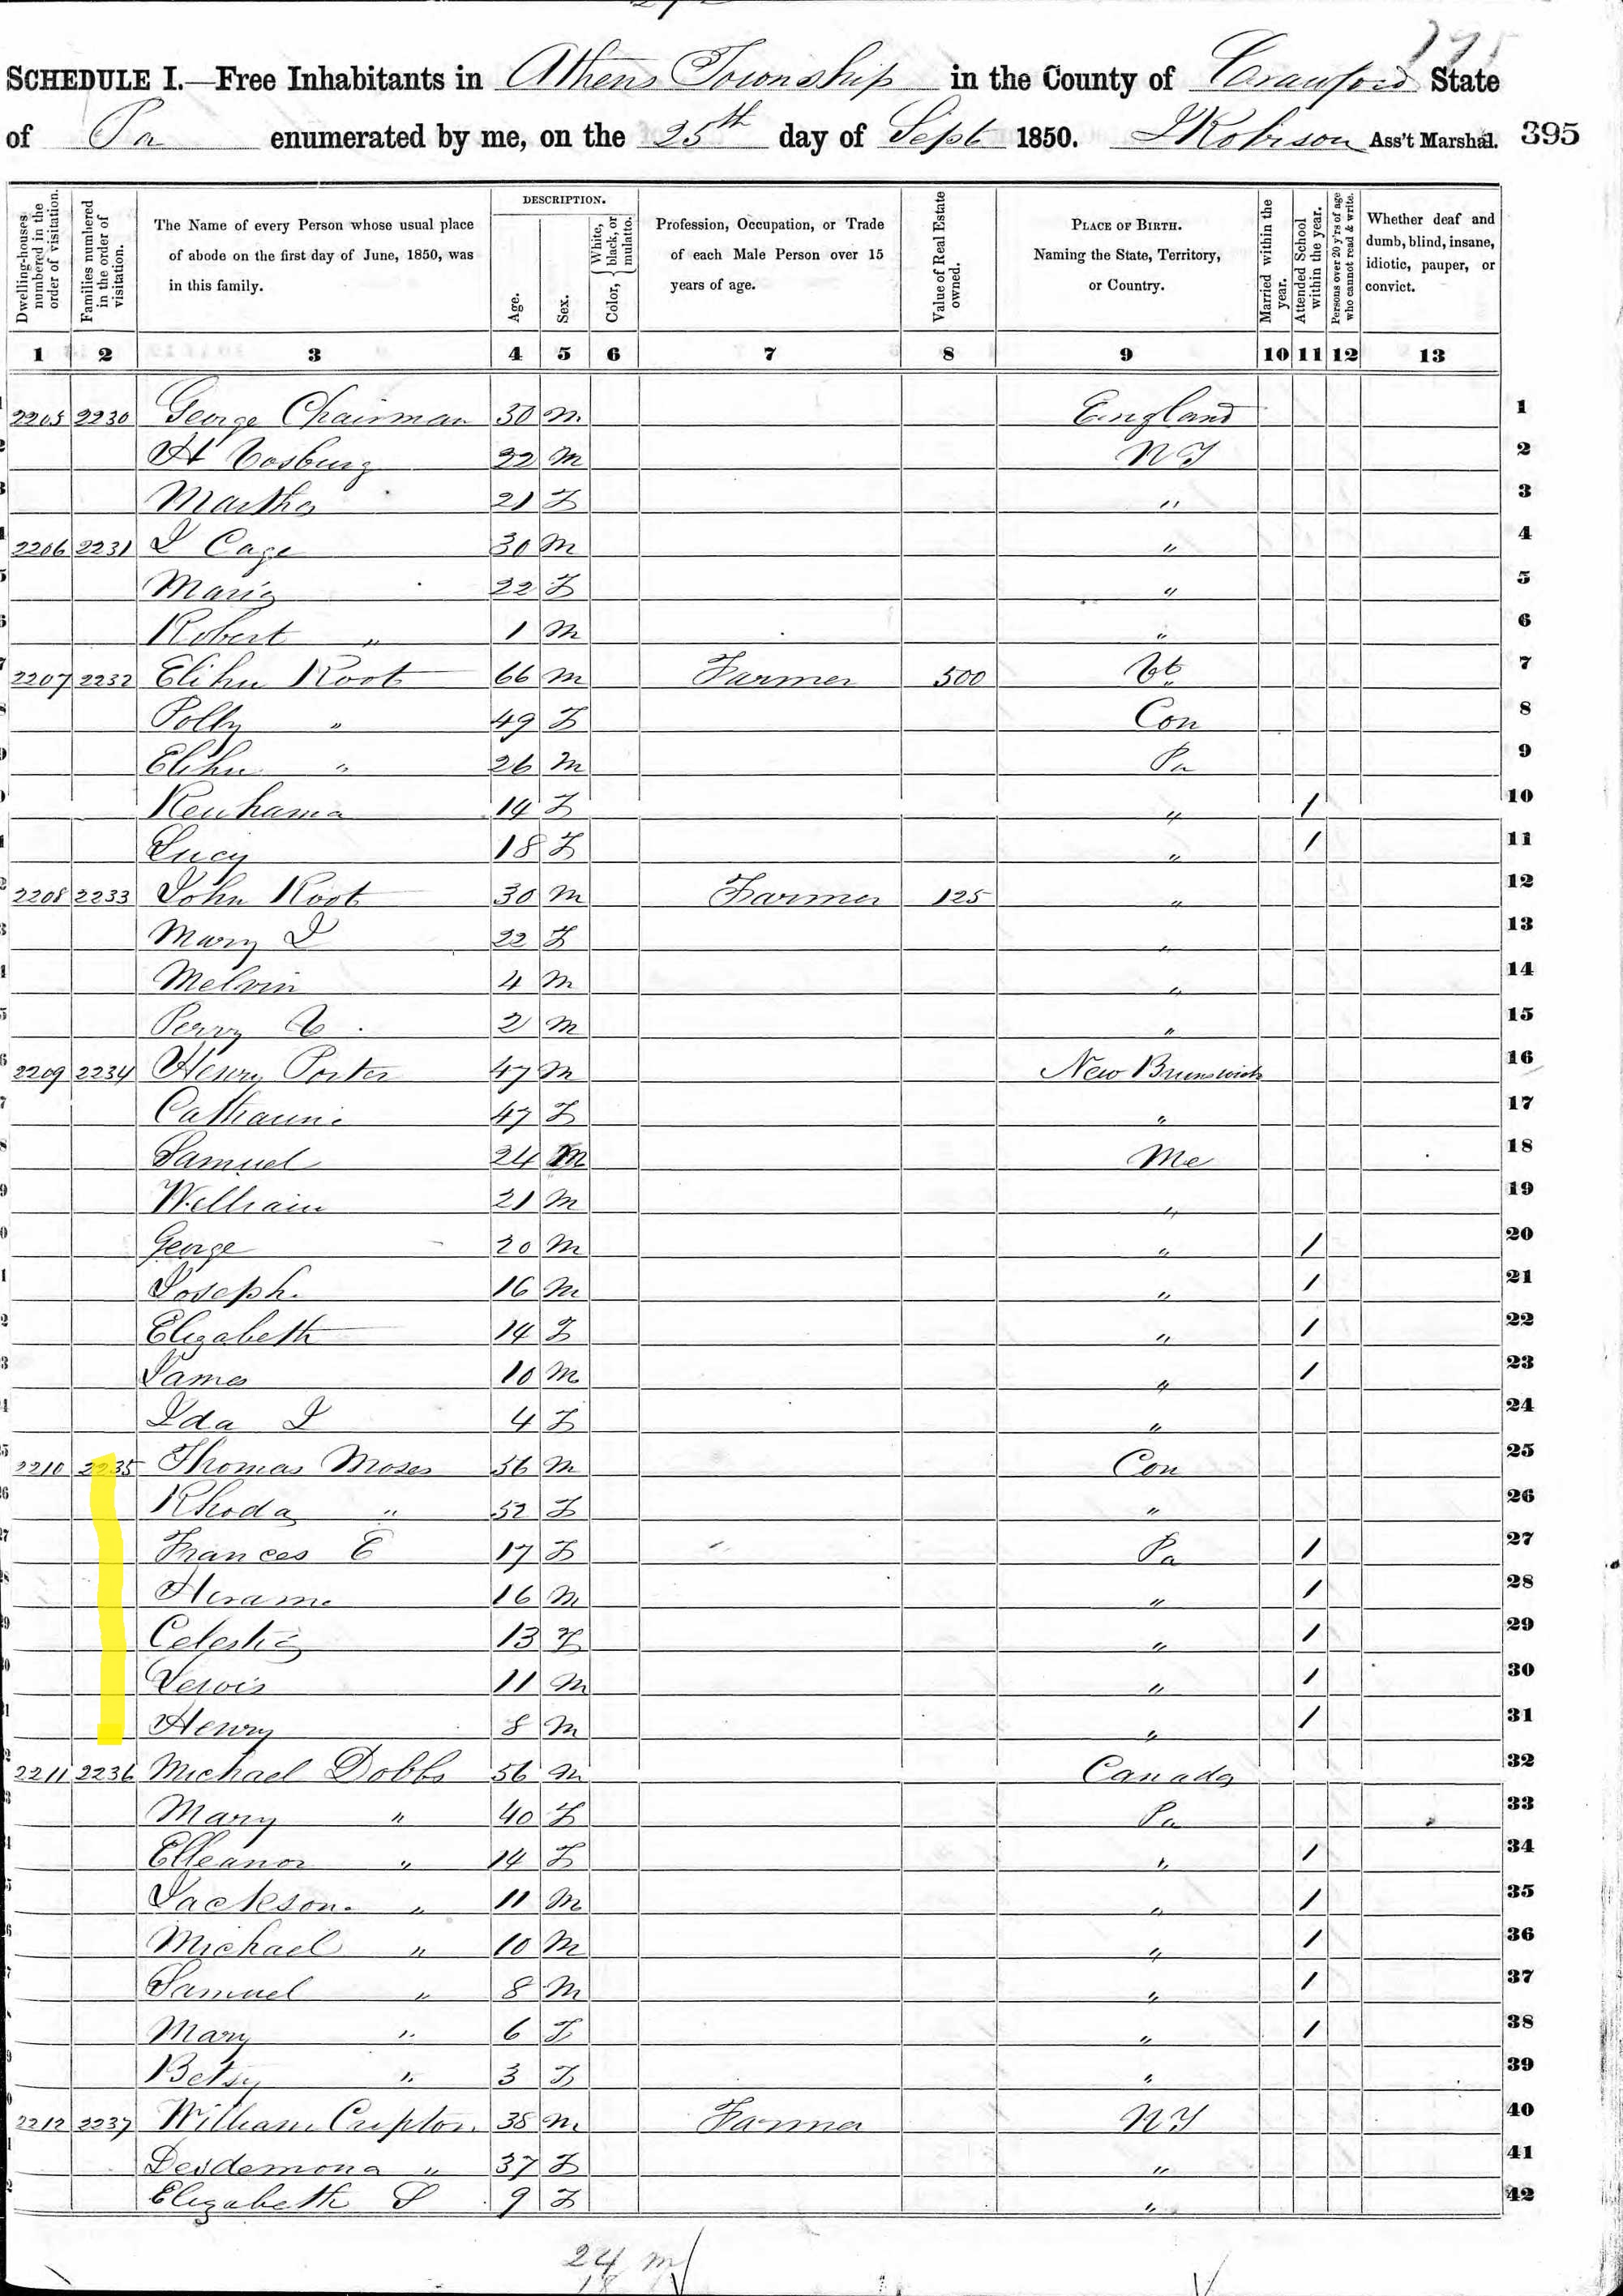 SCHEDULE I.—Free Inhabitants in Athens Township in the County of Crawford State
of Pa enumerated by me, on the 25th day of Sept 1850. J Robison Ass't Marshal. 395
Dwelling-houses numbered in the order of visitation.
Families numbered in the order of visitation.
The Name of every Person whose usual place of abode on the first day of June, 1850, was in this family.
DESCRIPTION.
Age.
Sex.
Color, { White, black, or mulatto.
Profession, Occupation, or Trade of each Male Person over 15 years of age.
Value of Real Estate owned.
PLACE OF BIRTH. Naming the State, Territory, or Country.
Married within the year.
Attended School within the year.
Persons over 20 y'rs of age who cannot read & write.
Whether deaf and dumb, blind, insane, idiotic, pauper, or convict.
1 2 3 4 5 6 7 8 9 10 11 12 13
2205 2230 George Chairman 30 M England 1
H Vosburg 22 M N Y 2
Martha 21 F " 3
2206 2231 I Cage 30 M " 4
Maria 22 F " 5
Robert " 1 M " 6
2207 2232 Elihu Root 66 M Farmer 500 Vt 7
Polly " 49 F Con 8
Elihu " 26 M Pa 9
Reuhama 14 F " / 10
Lucy 18 F " / 11
2208 2233 John Root 30 M Farmer 125 " 12
Mary I 22 F " 13
Melvin 4 M " 14
Perry 2 M " 15
2209 2234 Henry Porter 47 M New Brunswick 16
Catharine 47 F " 17
Samuel 24 M Me 18
William 21 M " 19
George 20 M " / 20
Joseph 16 M " / 21
Elizabeth 14 F " / 22
James 10 M " / 23
Ida I 4 F " 24
2210 2235 Thomas Moses 56 M Con 25
Rhoda " 52 F " 26
Frances E 17 F Pa / 27
Hiram 16 M " / 28
Celestia 13 F " / 29
Lewis 11 M " / 30
Henry 8 M " / 31
2211 2236 Michael Dobbs 56 M Canada 32
Mary " 40 F Pa 33
Elleanor " 14 F " / 34
Jackson " 11 M " / 35
Michael " 10 M " / 36
Samuel " 8 M " / 37
Mary " 6 F " / 38
Betsy " 3 F " 39
2212 2237 William Cripton 38 M Farmer N Y 40
Desdemona " 37 F " 41
Elizabeth S 9 F " 42
24 m
18